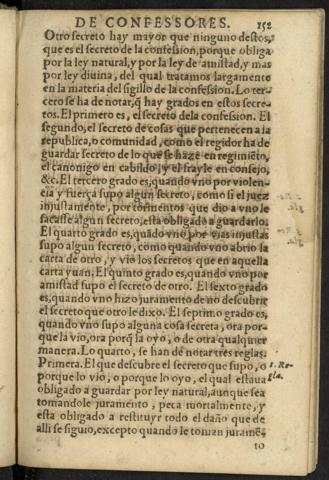 DE CONFESSORES. 152
Otro secreto hay mayor que ninguno destos,
que es el secreto de la confession, porque obliga
por la ley natural, y por la ley de amistad, y mas
por ley diuina, del qual tratamos largamente
en la materia del sigillo de la confession. Lo ter-
cero se ha de notar, q̃ hay grados en estos secre-
tos. El primero es, el secreto dela confession. El
segundo, el secreto de cosas que pertenecen a la
republica, o comunidad, como el regidor ha de
guardar secreto de lo que se haze en regimiẽto,
el canonigo en cabildo, y el frayle en consejo,
&c. El tercero grado es, quando vno por violen-
cia y fuerça supo algun secreto, como si el juez
injustamente, por tormentos que dio a vno le
sacasse algun secreto, esta obligado a guardarlo.
El quarto grado es, quãdo vno por vias injustas
supo algun secreto, como quando vno abrio la
carta de otro, y vio los secretos que en aquella
carta yuan. El quinto grado es, quando vno por
amistad supo el secreto de otro. El sexto grado
es, quando vno hizo juramento de no descubrir
el secreto que otro le dixo. El septimo grado es,
quando vno supo alguna cosa secreta, ora por-
que la vio, ora porq̃ la oyo, o de otra qualquier
manera. Lo quarto, se han de notar tres reglas.
Primera. El que descubre el secreto que supo, o 1. Re-
porque lo vio, o porque lo oyo, el qual estaua gla.
obligado a guardar por ley natural, aunque sea
tomandole juramento, peca mortalmente, y
esta obligado a restituyr todo el daño que de
alli se siguio, excepto quando le toman juramẽ-
to